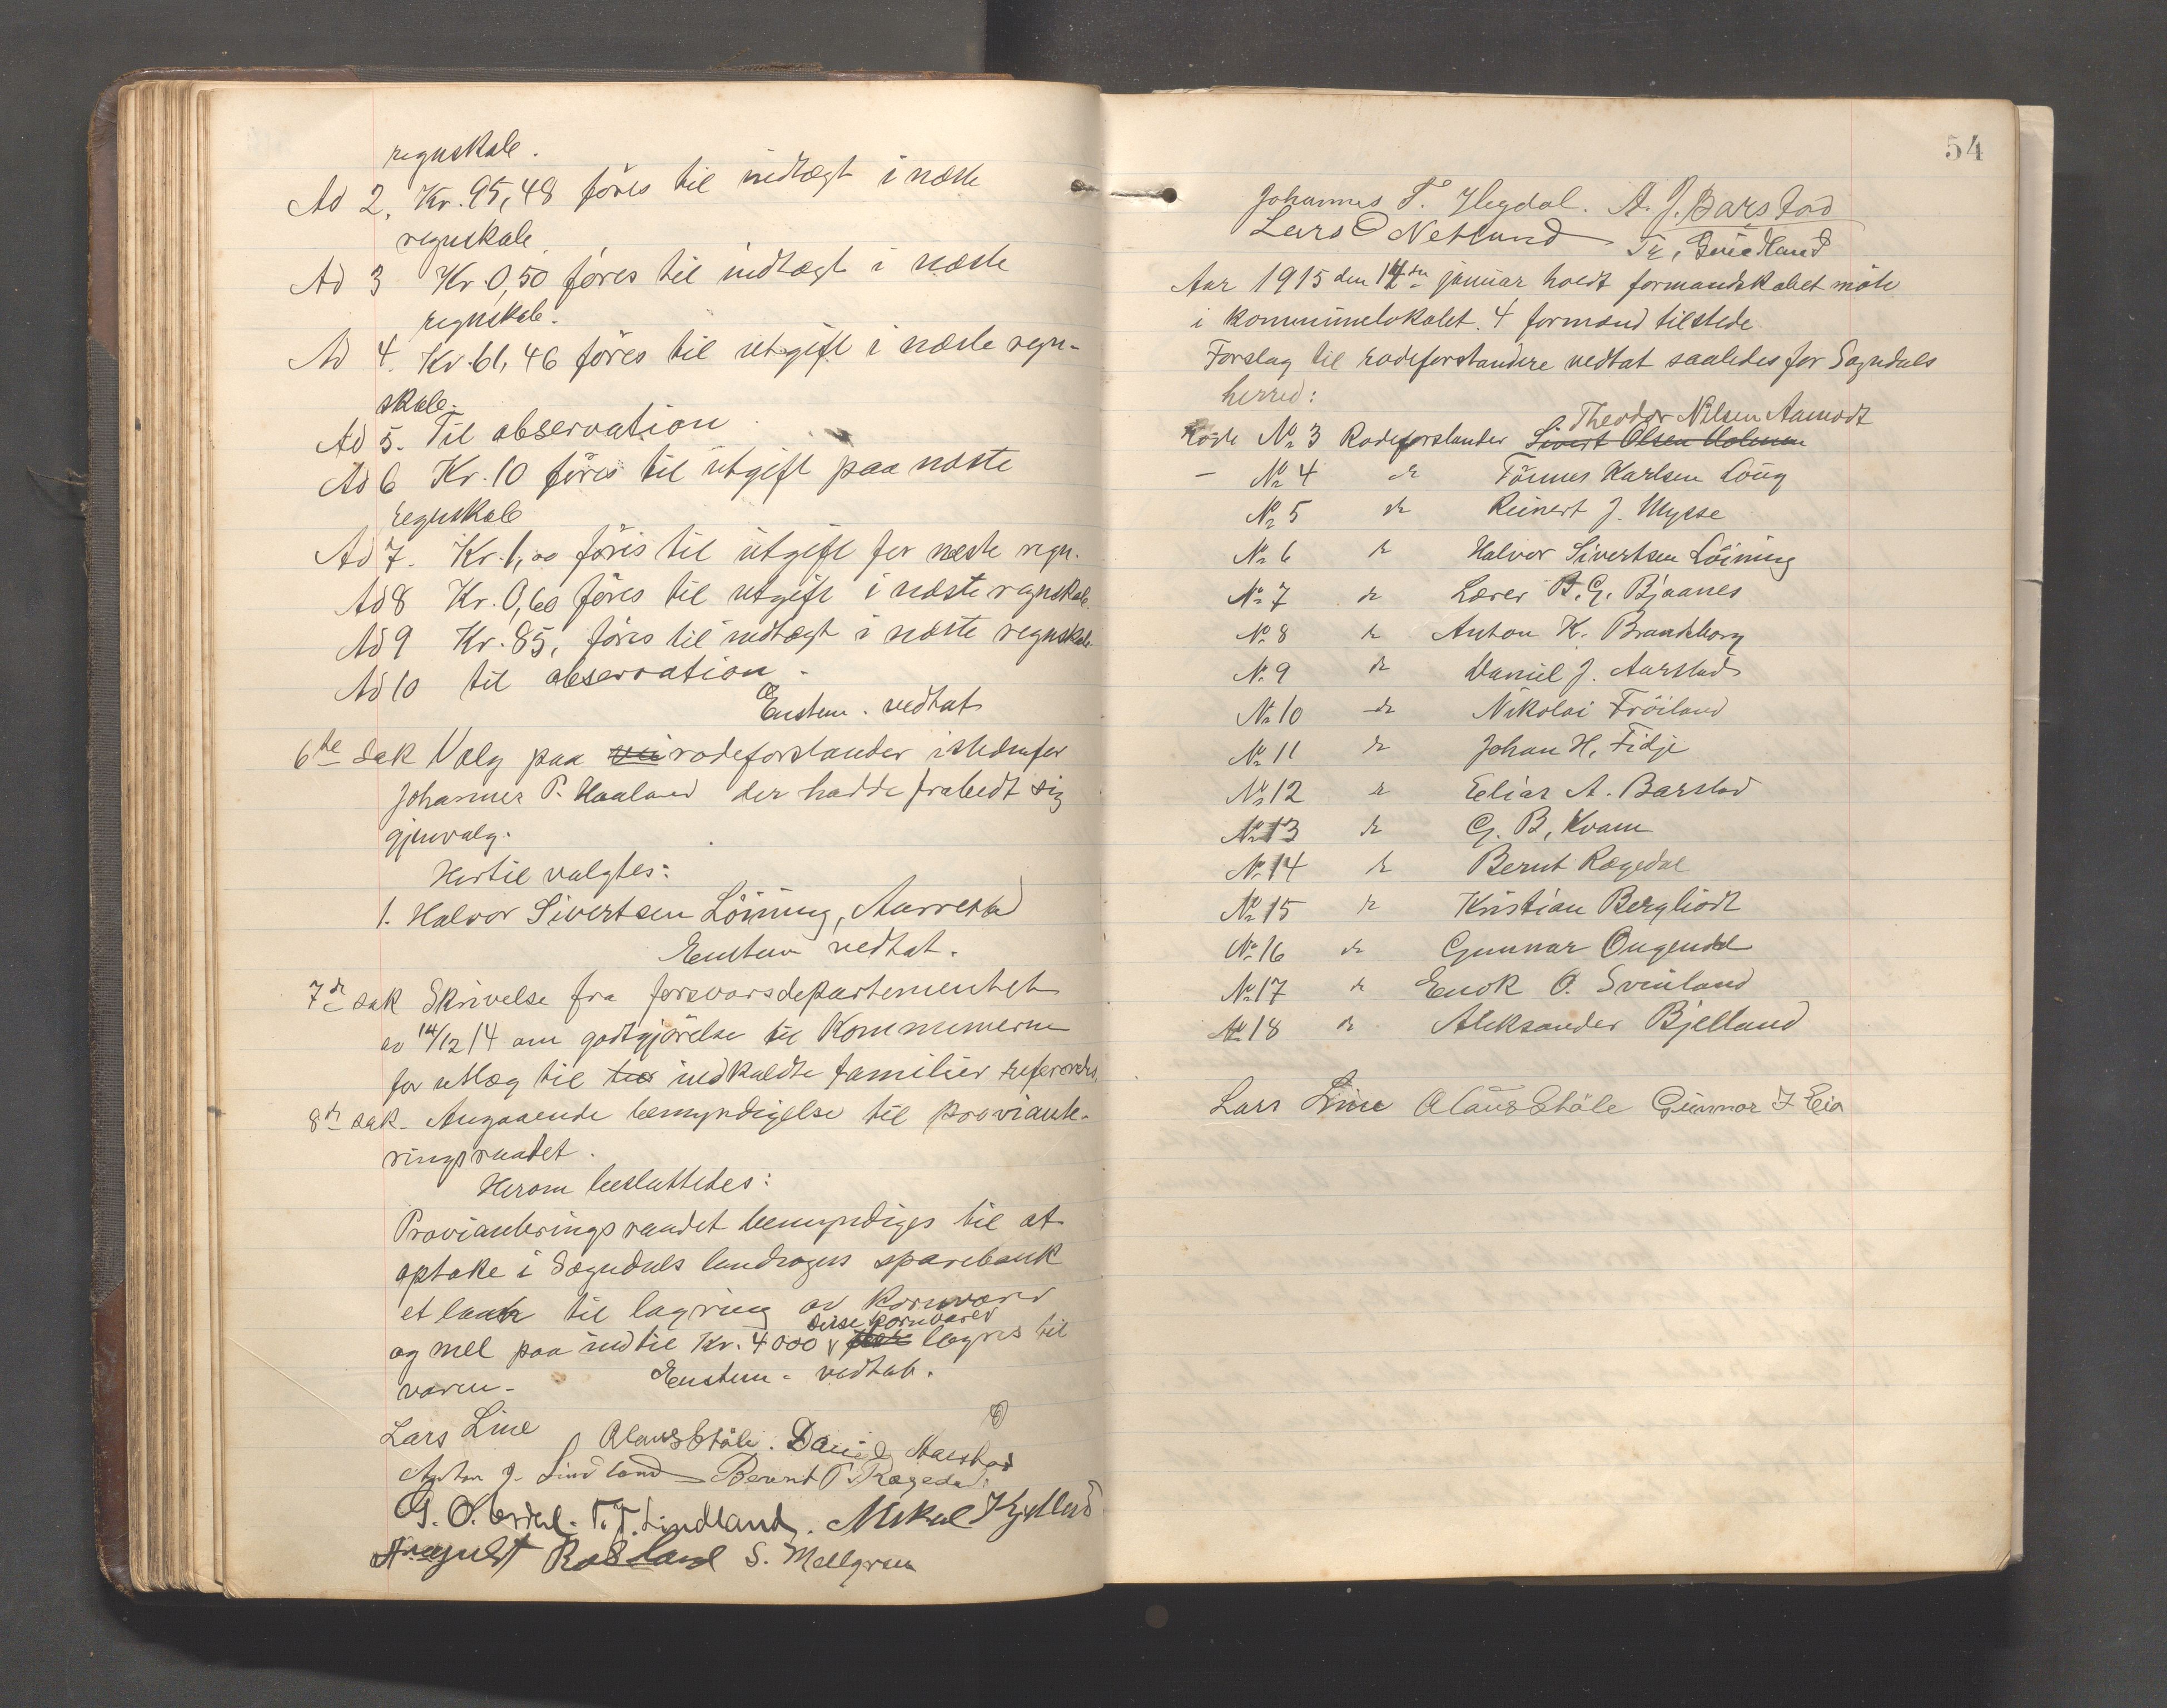 regnskab.
Ad 2. Kr. 95,48 föres til indtægt i næste
regnskab.
Ad 3 Kr. 0,50 föres til indtægt i næste
regnskab.
Ad 4. Kr. 61,46 föres til utgift i næste regn-
skab.
Ad 5. Til observation
Ad 6 Kr. 10 föres til utgift paa næste
regnskab
Ad 7. Kr. 1,00 föres til utgift for næste regn.
Ad 8 Kr. 0,60 föres til utgift i næste regnskab.
Ad 9 Kr. 85, föres til indtægt i næste regnskab.
Ad 10 til observation.
Enstem. vedtat
6te sak Valg paa vei rodeforstander istedenfor
Johannes P. Haaland der hadde frabedt sig
gjenvalg.
Hertil valgtes:
1. Halvor Sivertsen Löining, Aarrestad
Enstem vedtat.
7de sak Skrivelse fra forsvarsdepartementet
av 14/12 14 om godtgjörelse til Kommunerne
for utlæg til indkaldte familier refereredes.
8de sak. Angaaende bemyndigelse til Proviante-
ringsraadet.
Herom besluttedes:
Provianteringsraadet bemyndiges til at
optake i Sogndals landsogns sparebank
et laan til lagring av Kornvarer
disse kornvarer
og mel paa indtil Kr. 4000 lagres til
varen. Enstem. vedtat.
Lars Line Olaus Ståle. Daniel Aarstad
Anton J. Lindland Bernt T. Rægedal
G. O. Årdal. T. T. Lindland. Mikal Kjelland
August Rosland S. Mellgren
54
Johannes T. Hegdal. A. J. Barstad
Lars O Netland Tr. Lindland
Aar 1915 den 14de januar holdt formandskabet möte
i kommunelokalet. 4 formænd tilstede.
Forslag til rodeforstandere vedtat saaledes for Sogndals
herred:
Theodor Nilsen Aamodt
Rode No 3 Rodeforstander Sivert Olsen Holmen
— No 4 do Tönnes Karlsen Loug
No 5 do Reinert J. Mysse
No 6 do Halvor Sivertsen Löining
No 7 do Lærer B. G. Bjaanes
No 8 do Anton K. Brandsborg
No 9 do Daniel J. Aarstad
No 10 do Nikolai Fröiland
No 11 do Johan H. Fidje
No 12 do Elias A. Barstad
No 13 do G. B. Kvam
No 14 do Bernt Rægedal
No 15 do Kristian Bergliodt
No 16 do Gunnar Ougendal
No 17 do Enok O. Svinland
No 18 do Aleksander Bjelland
Lars Line Olaus Ståle Gunnar T Eia